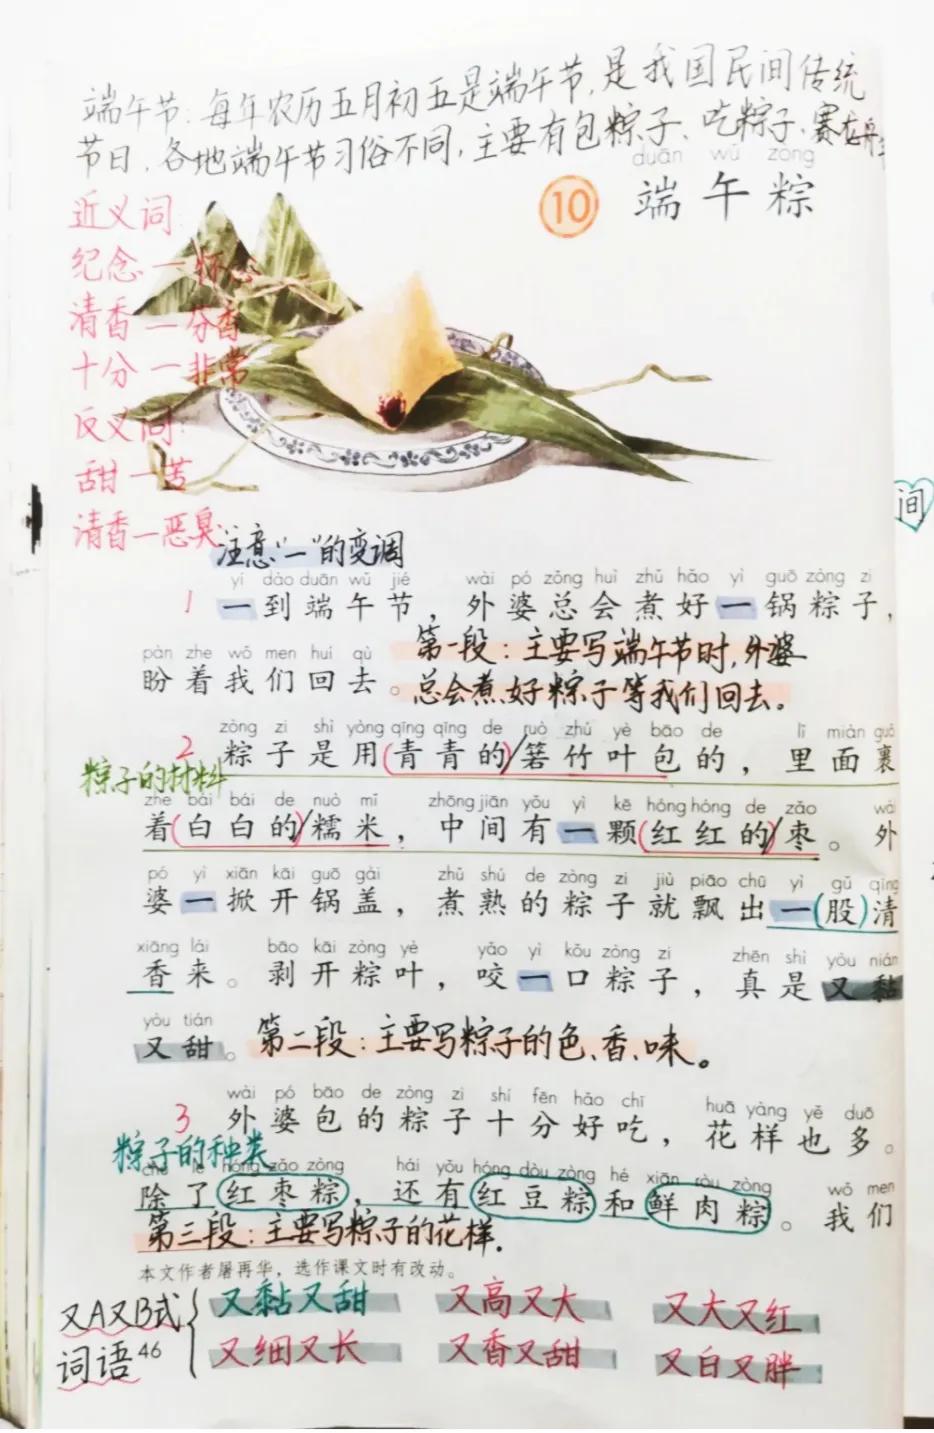 端午节：每年农历五月初五是端午节，是我国民间传统
节日，各地端午节习俗不同，主要有包粽子、吃粽子、赛龙舟
duān wǔ zòng
10 端午粽
近义词：
纪念—怀念
清香—芬香
十分—非常
反义词：
甜—苦
清香—恶臭
间
注意“一”的变调
yí dào duān wǔ jié wài pó zǒng huì zhǔ hǎo yì guō zòng zi
1 一到端午节，外婆总会煮好一锅粽子，
pàn zhe wǒ men huí qù
盼着我们回去。
第一段：主要写端午节时，外婆
总会煮好粽子等我们回去。
zòng zi shì yòng qīng qīng de ruò zhú yè bāo de lǐ miàn guǒ
2 粽子是用(青青的)/箬竹叶包的，里面裹
粽子的材料
zhe bái bái de nuò mǐ zhōng jiān yǒu yì kē hóng hóng de zǎo wài
着(白白的)/糯米，中间有一颗(红红的)/枣。外
pó yì xiān kāi guō gài zhǔ shú de zòng zi jiù piāo chū yì gǔ qīng
婆一掀开锅盖，煮熟的粽子就飘出一(股)清
xiāng lái bāo kāi zòng yè yǎo yì kǒu zòng zi zhēn shì yòu nián
香来。剥开粽叶，咬一口粽子，真是又黏
yòu tián
又甜。
第二段：主要写粽子的色、香、味。
wài pó bāo de zòng zi shí fēn hǎo chī huā yàng yě duō
3 外婆包的粽子十分好吃，花样也多。
粽子的种类
chú le hóng zǎo zòng hái yǒu hóng dòu zòng hé xiān ròu zòng wǒ men
除了红枣粽，还有红豆粽和鲜肉粽。我们
第三段：主要写粽子的花样.
本文作者屠再华，选作课文时有改动。
又A又B式
词语
又黏又甜 又高又大 又大又红
又细又长 又香又甜 又白又胖
46